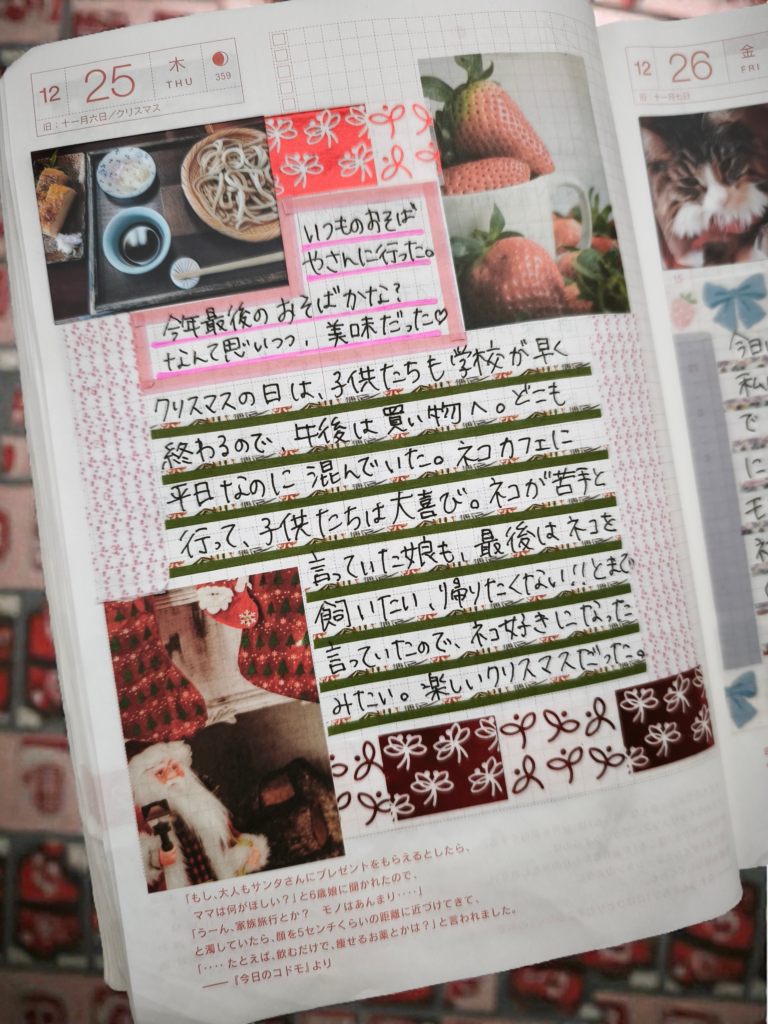 12 25 木
THU
359
旧:十一月六日/クリスマス
いつものおそば
やさんに行った。
今年最後のおそばかな?
なんて思いつつ、美味だった♡
クリスマスの日は、子供たちも学校が早く
終わるので 午後は買い物へ。どこも
平日なのに混んでいた。ネコカフェに
行って、子供たちは大喜び。ネコが苦手と
言っていた娘も、最後はネコを
飼いたい、帰りたくない!!とまで
言っていたので、ネコ好きになった
みたい。楽しいクリスマスだった。
「もし、大人もサンタさんにプレゼントをもらえるとしたら、
ママは何がほしい?」と6歳娘に聞かれたので、
「うーん、家族旅行とか? モノはあんまり‥‥」
と濁していたら、顔を5センチくらいの距離に近づけてきて、
「‥‥たとえば、飲むだけで、痩せるお薬とかは?」と言われました。
──『今日のコドモ』より
12 26 金
FRI
旧:十一月七日
今日
私
で
に